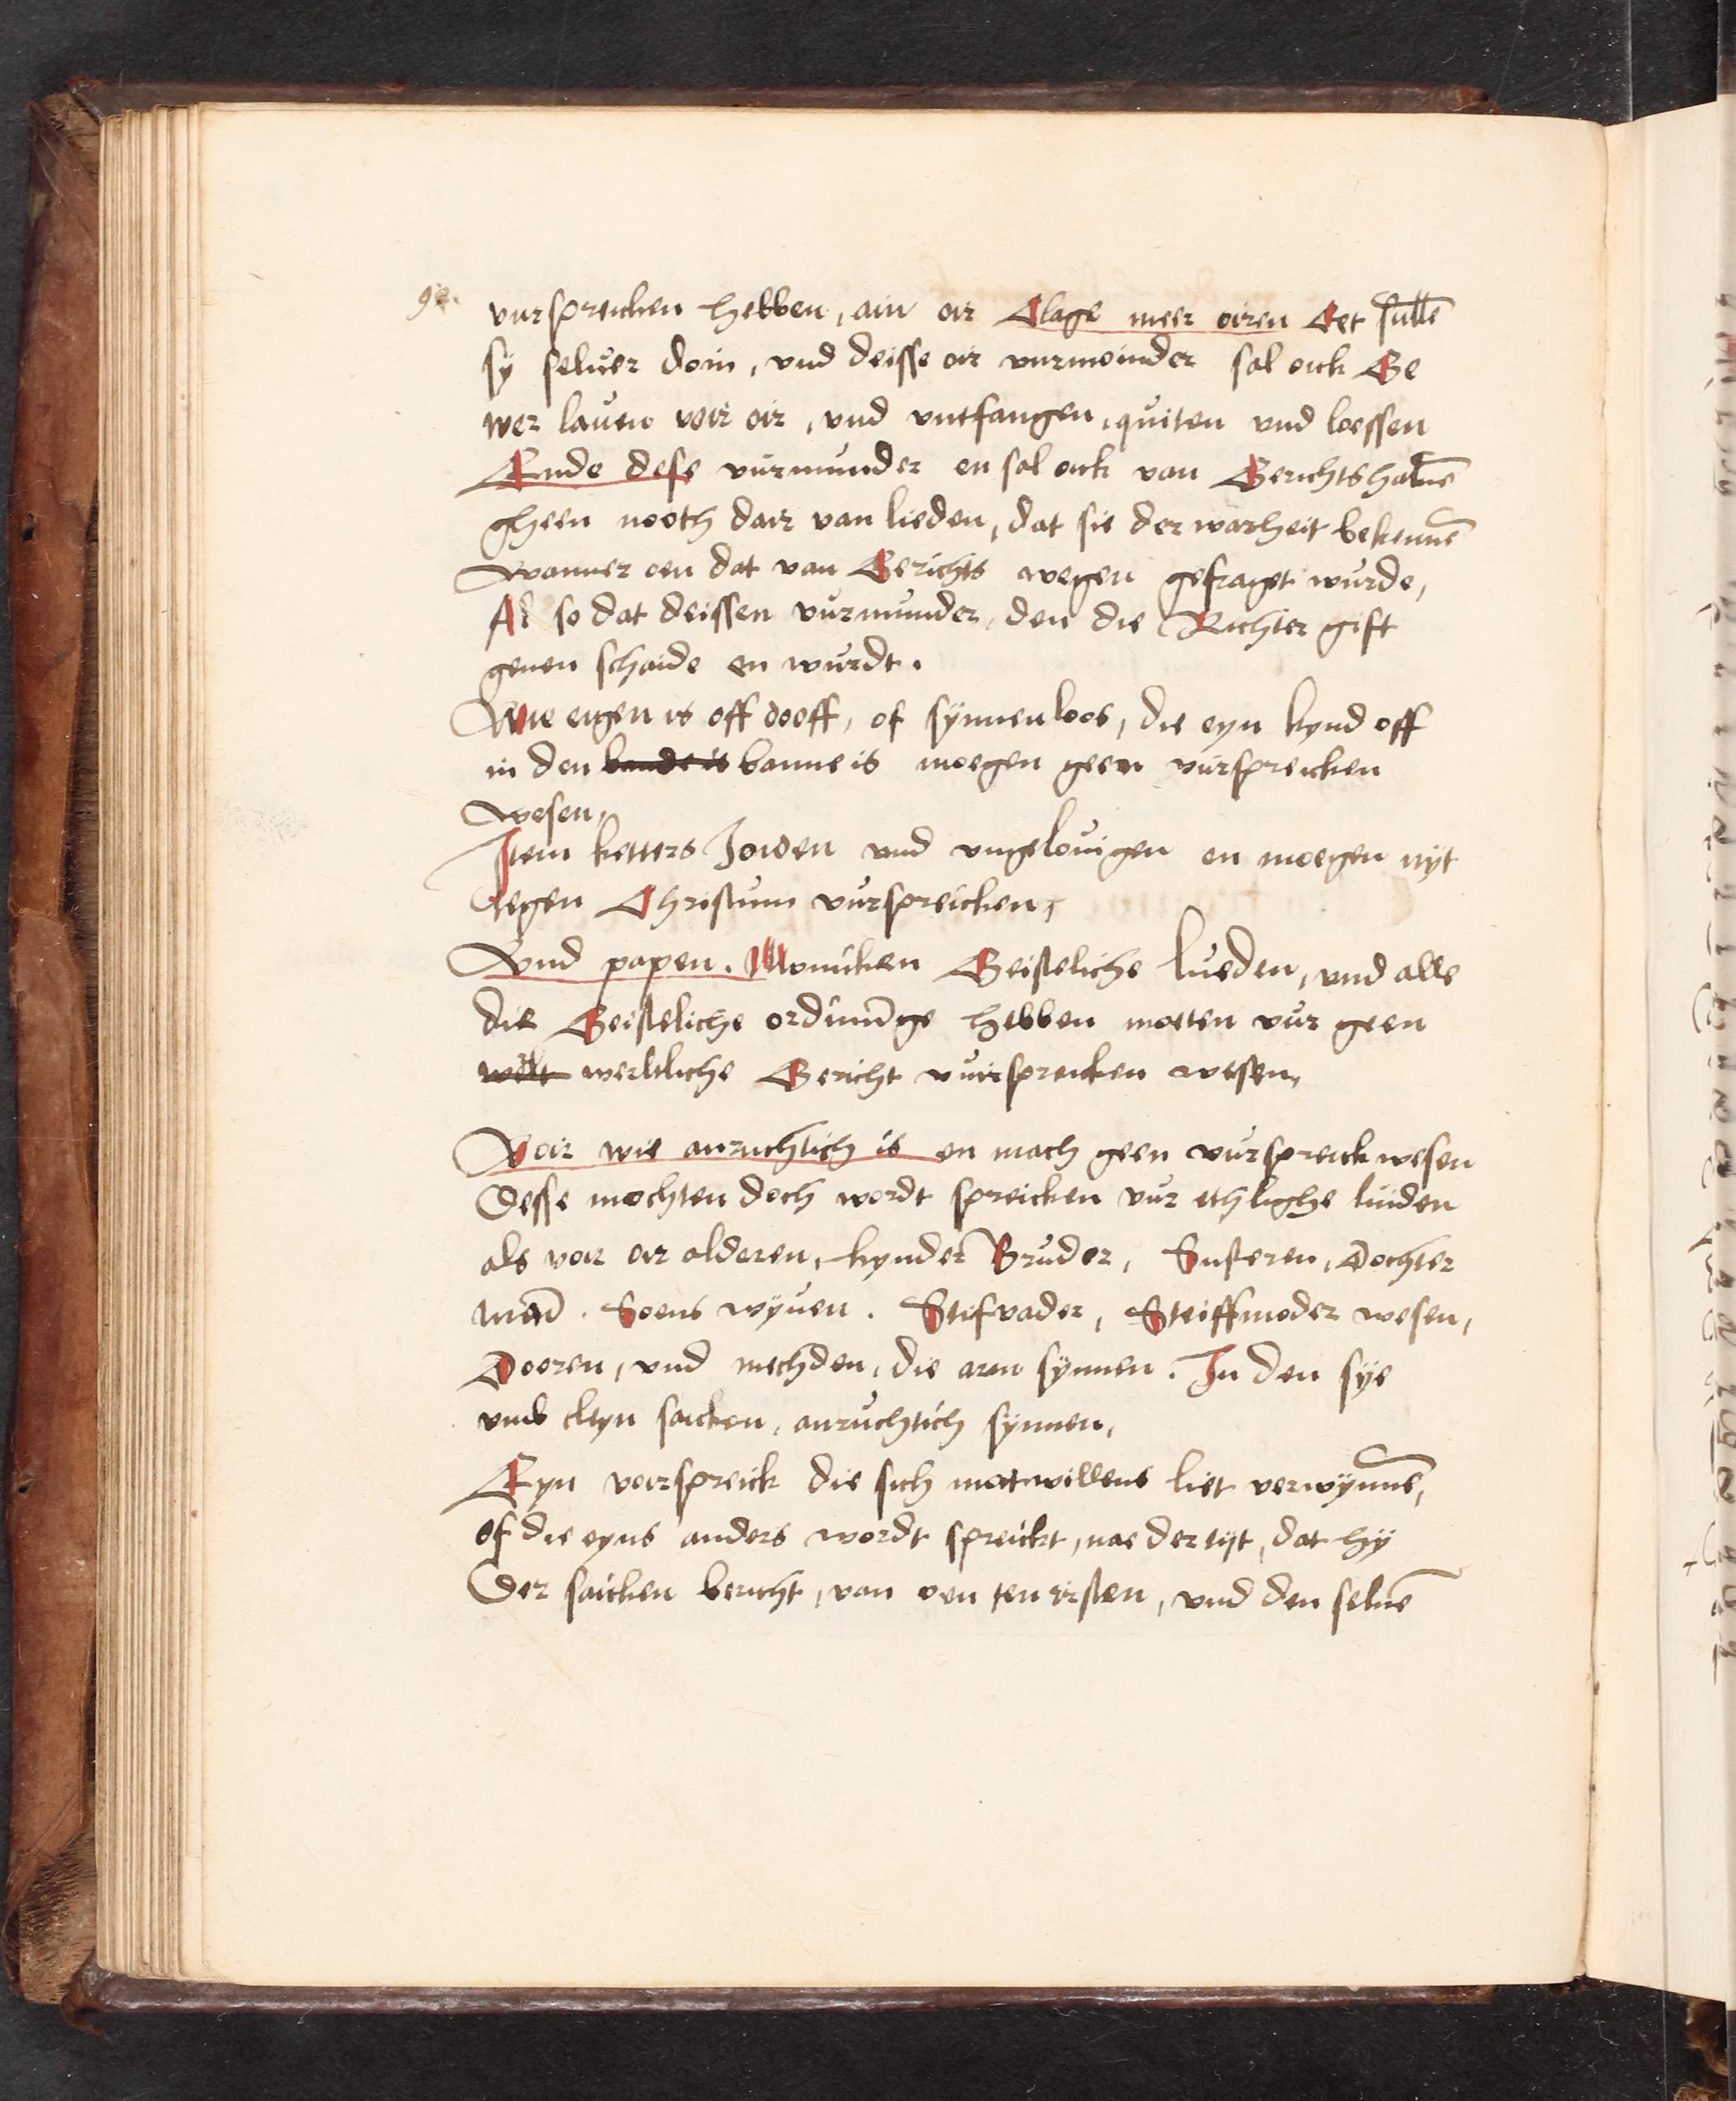 92.
vurspreicken hebben, ain oir Clage meer oiren Eet sullē
sÿ seluer doin, vnd deisse oir vurmoinder sal oick Ge
wer lauen voir oir, vnd vntfangen, quiten vnd loessen
Ende dese vurmunder en sal oick van Gerichtshaluē
gheen nooth dair van lieden, dat sie der warheit bekennē
Wanner oen dat van Gerichts wegen gefraget wurde,
Al so dat deissen vurmunder, den die Richter gift
genen schaide en wurdt.
Wie eigen is off dooff, of sÿnnenloos, die eyn kynd off
in den bande is banne is moegen geen vurspreicken
Wesen,
Item ketters Joeden vnd vngelouigen en moegen nÿt
tegen Christum vurspreicken,
Vnd papen. Moniken Geisteliche lueden, vnd alle
die Geisteliche ordinūge hebben moeten vur geen
welt werltliche Gericht vuirspreicken wesen,
Voir wie anruchtich is en mach geen vurspreick wesen
Desse mochten doch wordt spreicken vur ethlighe luiden
als voir oir alderen, kynder Bruder, Susteren, Dochter
man̄. Soens wÿuen. Stifvader, Steiffmoder wesen,
Dooren, vnd mechden, die arm sÿnnen. In den sÿe
vmb cleyn saicken, anruchtich sÿnnen,
Eyn voirspreick die sich moetwillens liet verwÿnnē,
of die eyns anders wordt spreickt, nae der tijt, dat hÿ
Der saicken bericht, van oen ten irsten, vnd den seluē